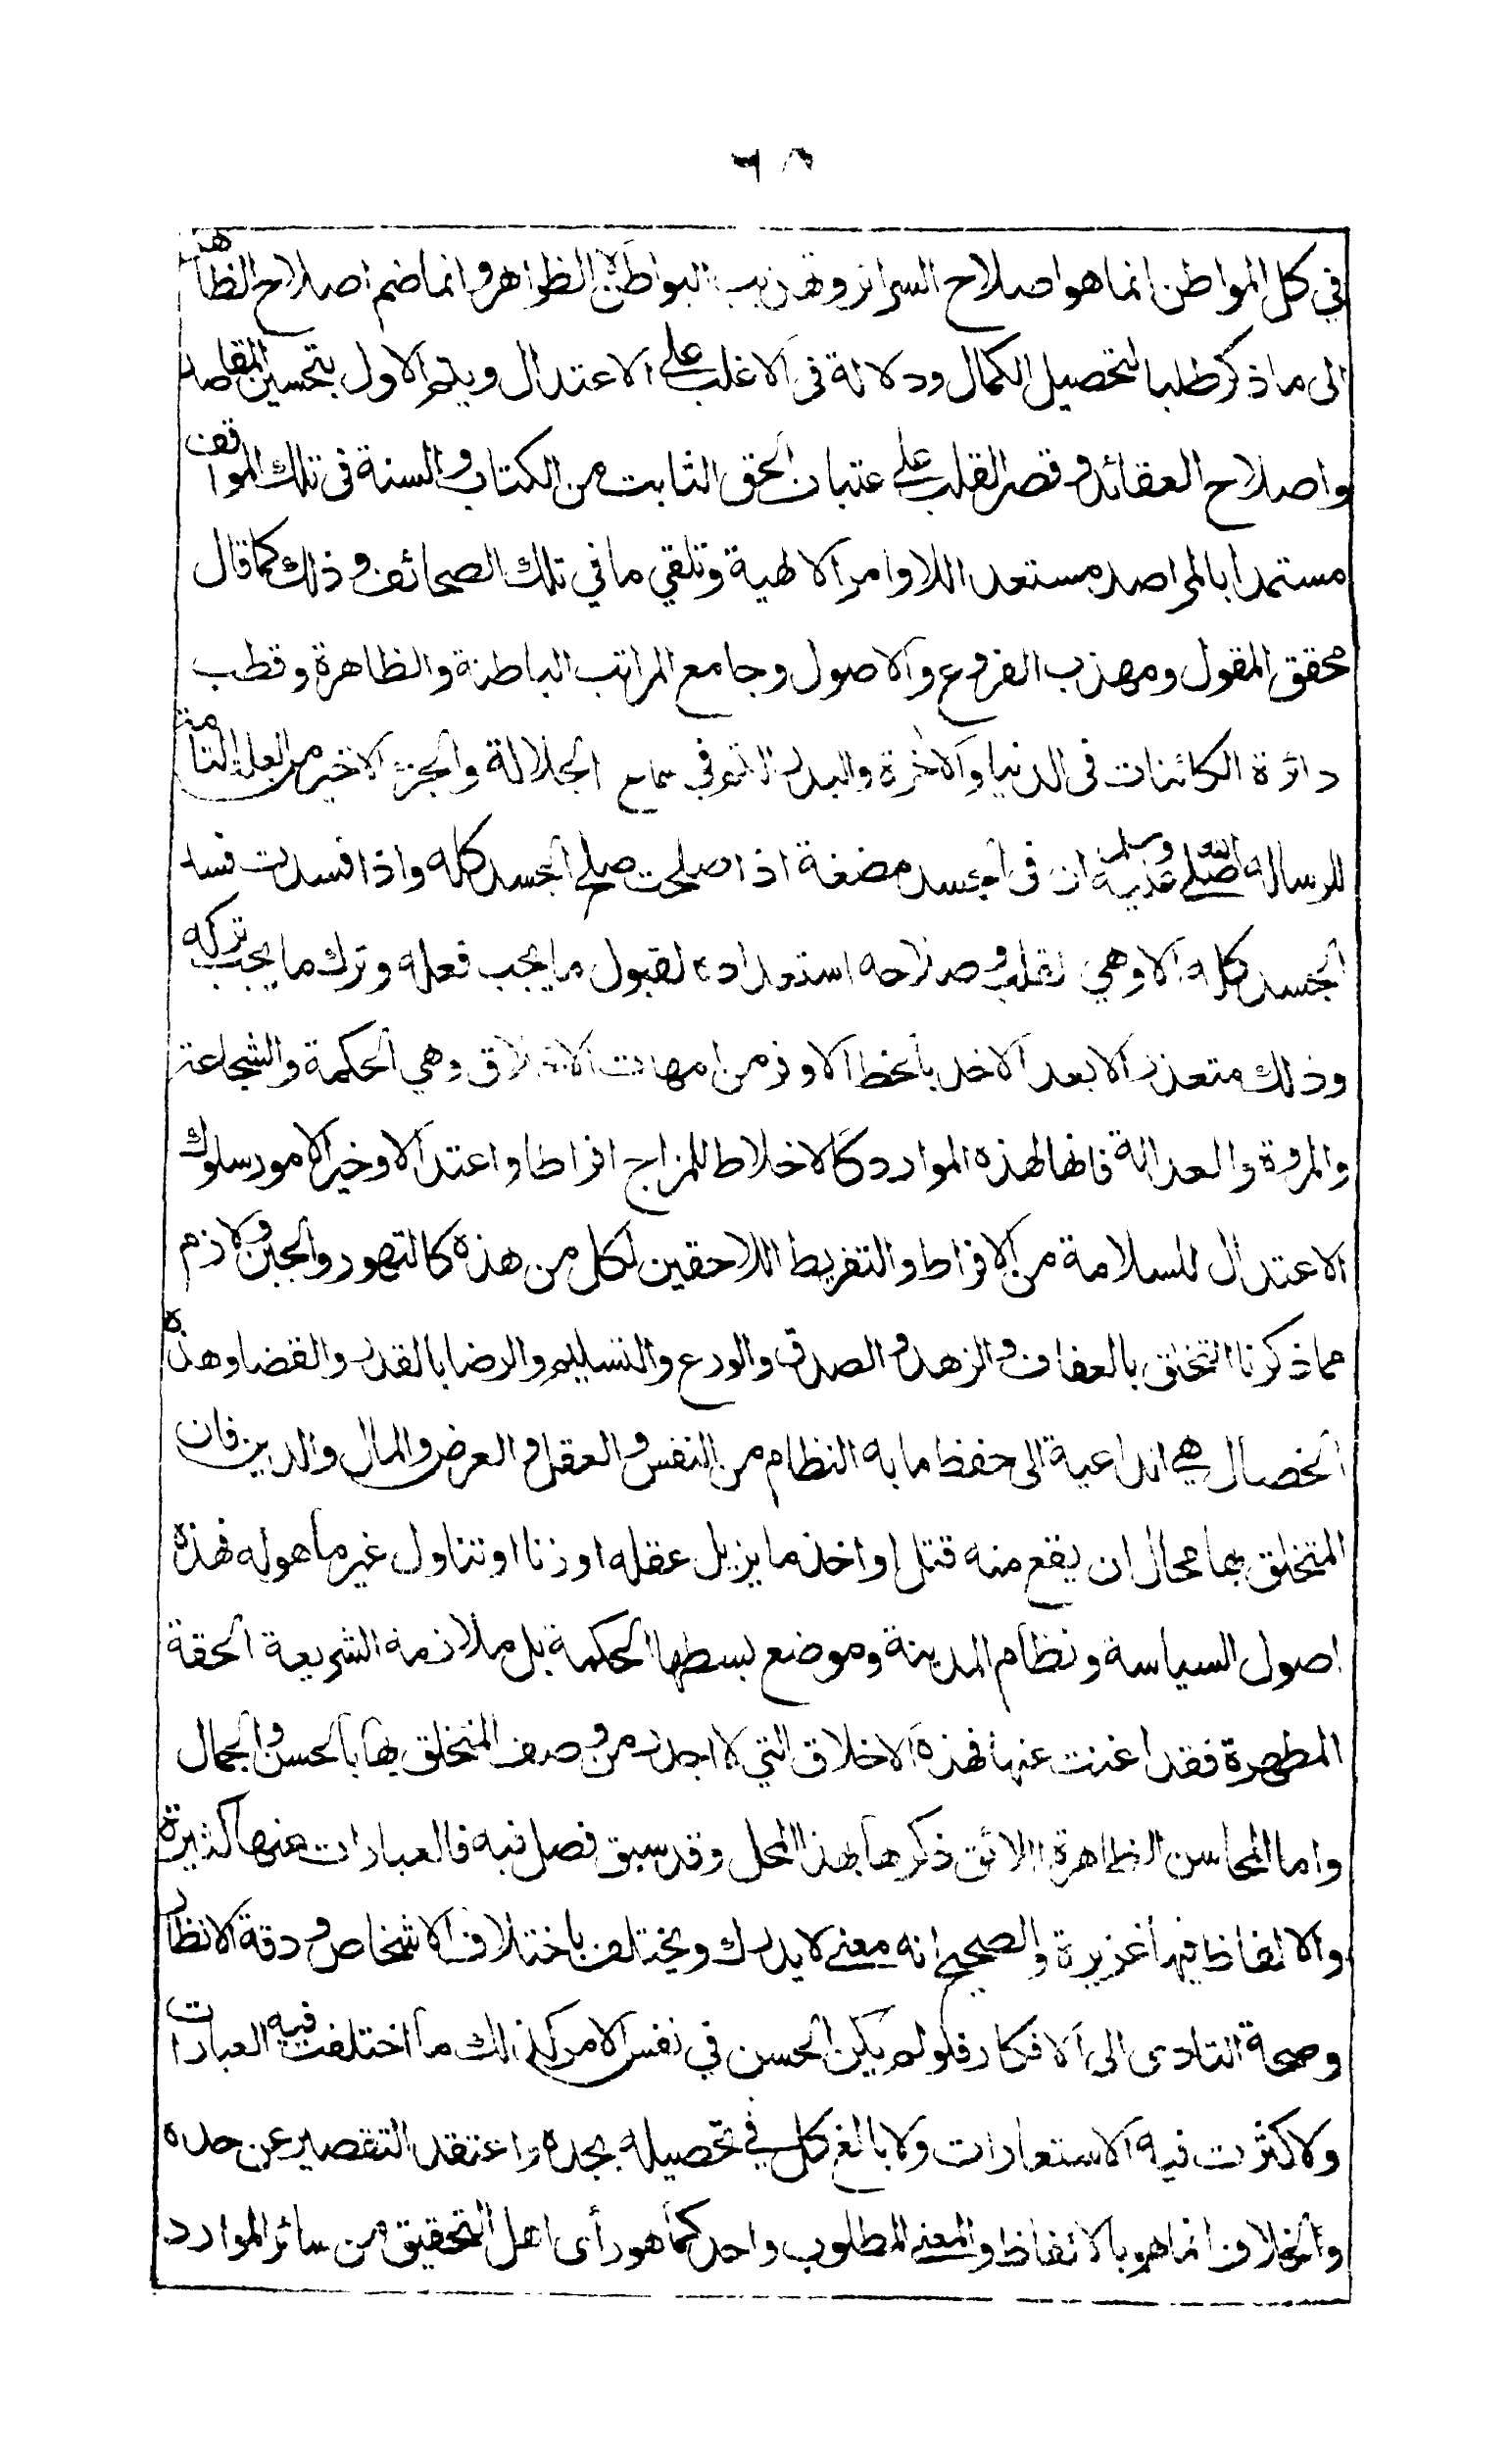 ٦٨
في كل المواطن انما هو اصلاح السرائر وتهذيب البواطن لا الظواهر وانما ضم اصلاح الظاهر
الى ما ذكر طلبا لتحصيل الكمال ودلالة في الاغلب على الاعتدال ويتم الاول بتحسين المقاصد
واصلاح العقائد وقصر القلب على عتبات الحق الثابت من الكتاب والسنة في تلك المواقف
مستمدا بالمراصد مستعدا للاوامر الالهية وتلقي ما في تلك الصحائف وذلك كما قال
محقق المقول ومهذب الفروع والاصول وجامع المراتب الباطنة والظاهرة وقطب
دائرة الكائنات في الدنيا والاخرة والبدر الاتم في سماء الجلالة والجزء الاخير من العلة التامة
للرسالة صلى الله عليه وسلم ان في الجسد مضغة اذا صلحت صلح الجسد كله واذا فسدت فسد
الجسد كله الا وهي القلب وصلاحه استعداده لقبول ما يجب فعله وترك ما يجب تركه
وذلك متعذر الا بعد الاخذ بالحظ الاوفر من امهات الاخلاق وهي الحكمة والشجاعة
والمروة والعدالة فانها لهذه الموارد كالاخلاط للمزاج افراطا واعتدالا وخير الامور سلوك
الاعتدال للسلامة من الافراط والتفريط اللاحقين لكل من هذه كالتهور والجبن ولازم
مما ذكرنا التخلق بالعفاف والزهد والصدق والورع والتسليم والرضا بالقدر والقضا وهذه
الخصال هي الداعية الى حفظ ما به النظام من النفس والعقل والعرض والمال والدين فان
المتخلق بها محال ان يقع منه قتل او اخذ ما يزيل عقله او زنا او تناول غير ما هو له فهذه
اصول السياسة ونظام المدينة وموضع بسطها الحكمة بل ملازمة الشريعة الحقة
المطهرة فقد اغنت عنها فهذه الاخلاق التي لا اجدر من وصف المتخلق بها بالحسن والجمال
واما المحاسن الظاهرة اللائق ذكرها بهذا المحل وقد سبق فصل فيه فالعبارات عنها كثيرة
والالفاظ فيها غزيرة والصحيح انه معنى لا يدرك ويختلف باختلاف الاشخاص ودقة الانظار
وصحة التادى الى الافكار فلو لم يكن الحسن في نفس الامر كذلك ما اختلفت فيه العبارات
ولا كثرت فيه الاستعارات ولا بالغ كل في تحصيله بجده واعتقد التقصير عن حده
والخلاف انما هو بالالفاظ والمعنى المطلوب واحد كما هو رأى اهل التحقيق من سائر الموارد